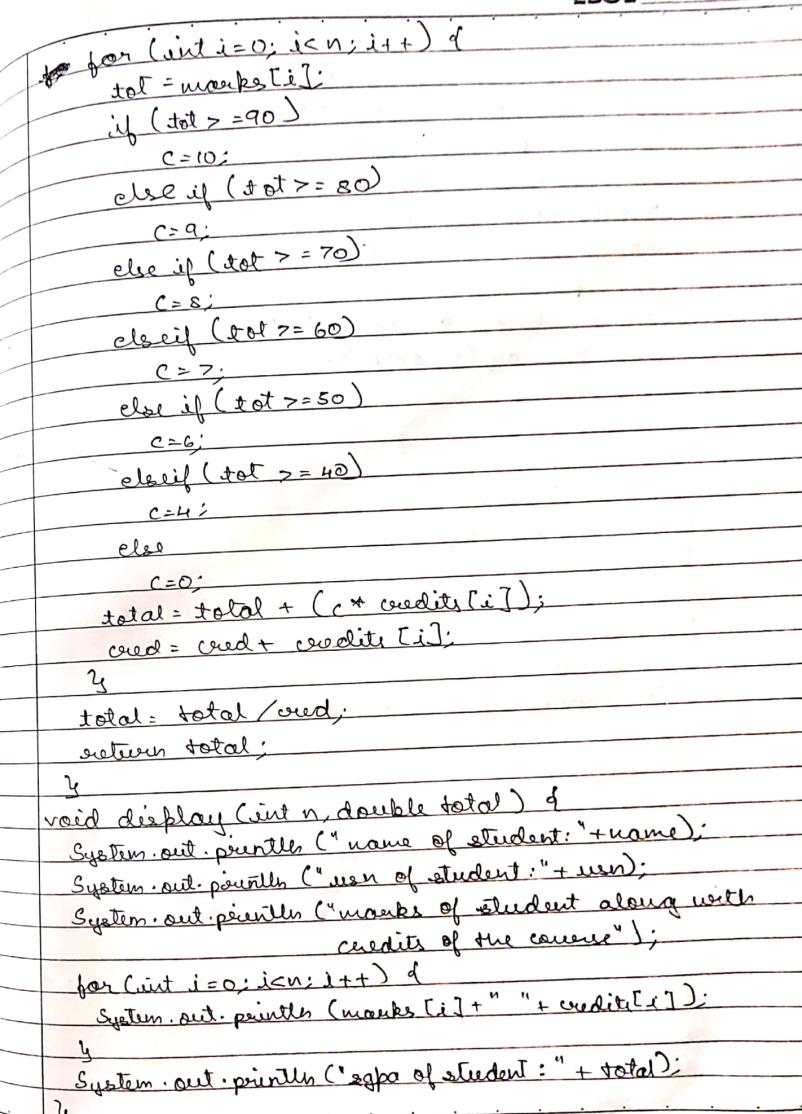 for (int i=0; i<n; i++) {
tot = marks[i];
if (tot >=90)
c=10;
else if (tot >= 80)
c=9;
else if (tot >= 70)
c=8;
else if (tot >= 60)
c=7;
else if (tot >=50)
c=6;
else if (tot >= 40)
c=4;
else
c=0;
total = total + (c* credits[i]);
cred = cred + credits [i];
}
total = total /cred;
return total;
}
void display (int n, double total) {
System.out.println ("name of student:"+name);
System.out.println ("usn of student:"+ usn);
System.out.println ("marks of student along with
credits of the course");
for (int i=0; i<n; i++) {
System.out.println (marks [i]+" "+ credits[i]);
}
System.out.println ("sgpa of student:" + total);
}